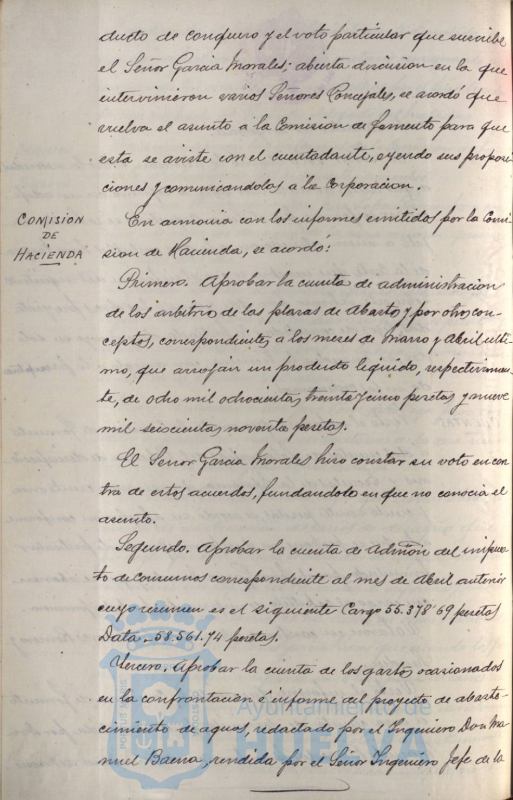 ducto de conquero y el voto particular que suscribe
el Señor Garcia Morales; abierta discusion en la que
intervinieron varios Señores Concejales, se acordó que
vuelva el asunto á la Comision de Fomento para que
esta se aviste con el cuentadante, oyendo sus proposi-
ciones y comunicandolas á la Corporacion.
COMISION
DE
HACIENDA
En armonia con los informes emitidos por la Comi-
sion de Hacienda, se acordó:
Primero. Aprobar la cuenta de administracion
de los arbitrios de las plazas de Abasto y por otros con-
ceptos, correspondientes á los meses de Marzo y Abril ulti-
mo, que arrojan un producto liquido, respectivamen-
te, de ocho mil ochocientas treinta y cinco pesetas y nueve
mil seiscientas noventa pesetas.
El Señor Garcia Morales hizo constar su voto en con-
tra de estos acuerdos, fundandolo en que no conocia el
asunto.
Segundo. Aprobar la cuenta de Admon del impues-
to de Consumos correspondiente al mes de Abril anterior
cuyo resumen es el siguiente Cargo 55.378'69 pesetas
Data. 58.561.74 pesetas.
Tercero. Aprobar la cuenta de los gastos ocasionados
en la confrontacion é informe del proyecto de abaste-
cimiento de aguas, redactado por el Ingeniero Don Ma-
nuel Baena, rendida por el Señor Ingeniero Jefe de la
Ayuntamiento de
HUELVA